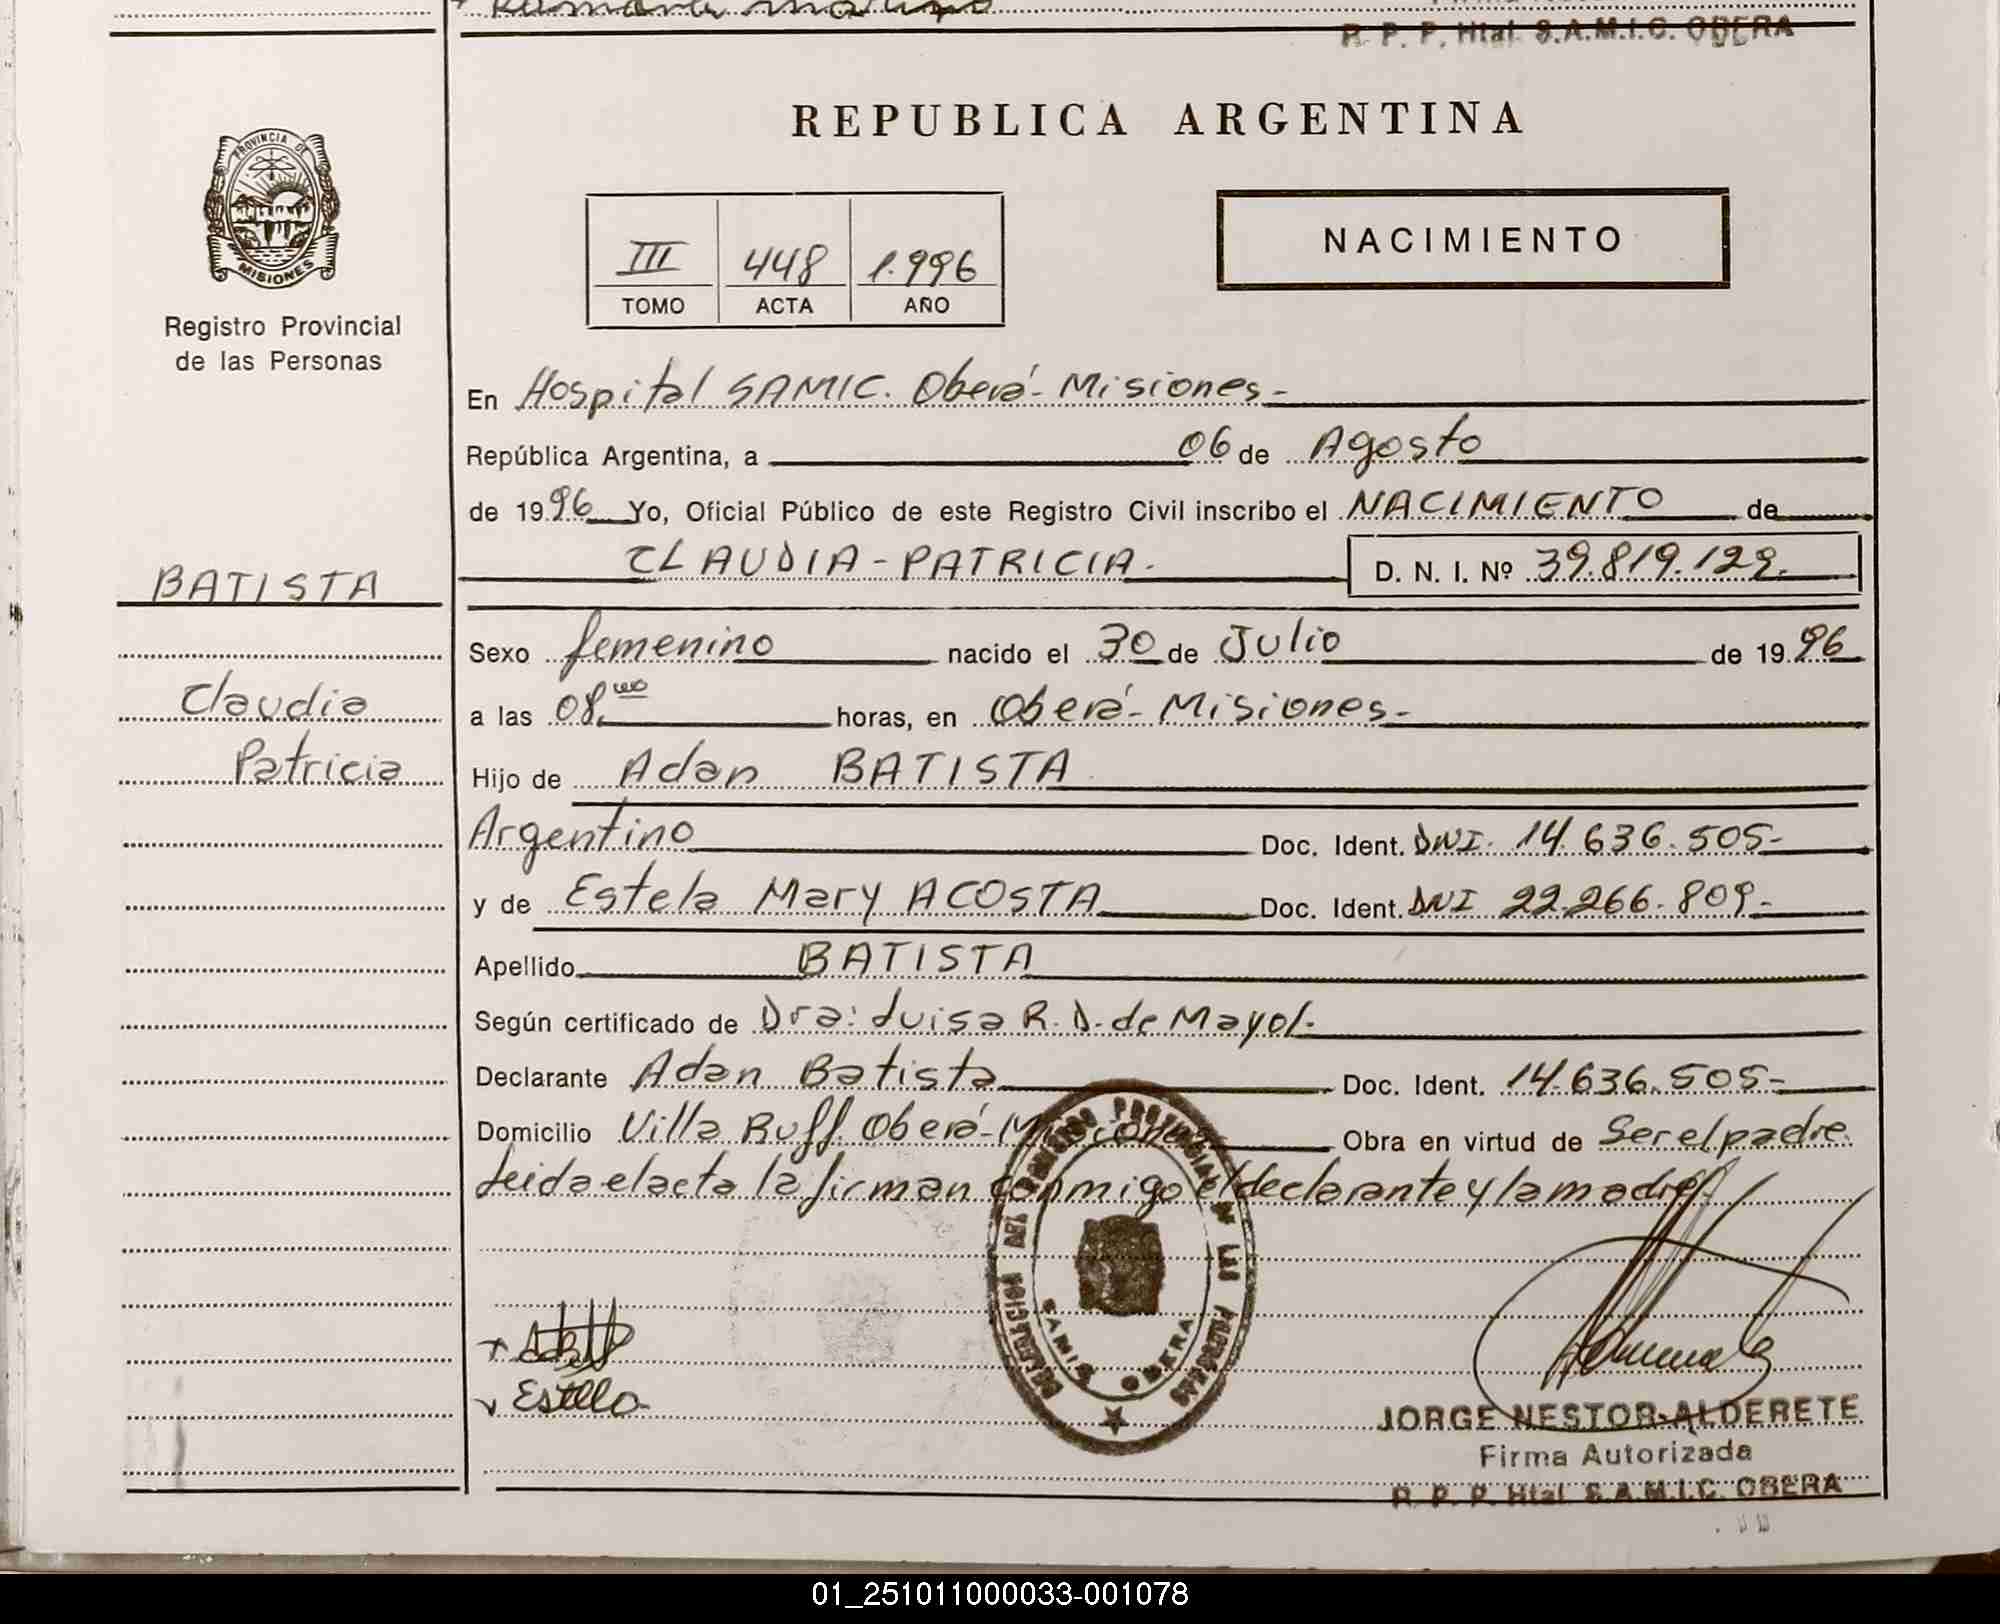 R. P. P. Htal. S.A.M.I.C. OBERA
PROVINCIA DE
MISIONES
Registro Provincial
de las Personas
REPUBLICA ARGENTINA
III 448 1.996
TOMO ACTA AÑO
NACIMIENTO
En Hospital SAMIC. Oberá - Misiones -
República Argentina, a 06 de Agosto
de 1996 Yo, Oficial Público de este Registro Civil inscribo el NACIMIENTO de
CLAUDIA - PATRICIA. D. N. I. Nº 39.819.129.
BATISTA
Claudia
Patricia
Sexo femenino nacido el 30 de Julio de 1996
a las 08. horas, en Oberá - Misiones -
Hijo de Adan BATISTA
Argentino Doc. Ident. DNI. 14.636.505-
y de Estela Mary ACOSTA Doc. Ident. DNI 22.266.809-
Apellido BATISTA
Según certificado de Dra: Luisa R. D. de Mayol.
Declarante Adan Batista Doc. Ident. 14.636.505-
Domicilio Villa Ruff. Oberá - Misiones Obra en virtud de Ser el padre
Leida el acta la firman conmigo el declarante y la madre
DELEGACION DEL REGISTRO PROVINCIAL DE LAS PERSONAS
SAMIC OBERA
Estela
JORGE NESTOR ALDERETE
Firma Autorizada
R. P. P. Htal. S.A.M.I.C. OBERA
01_251011000033-001078